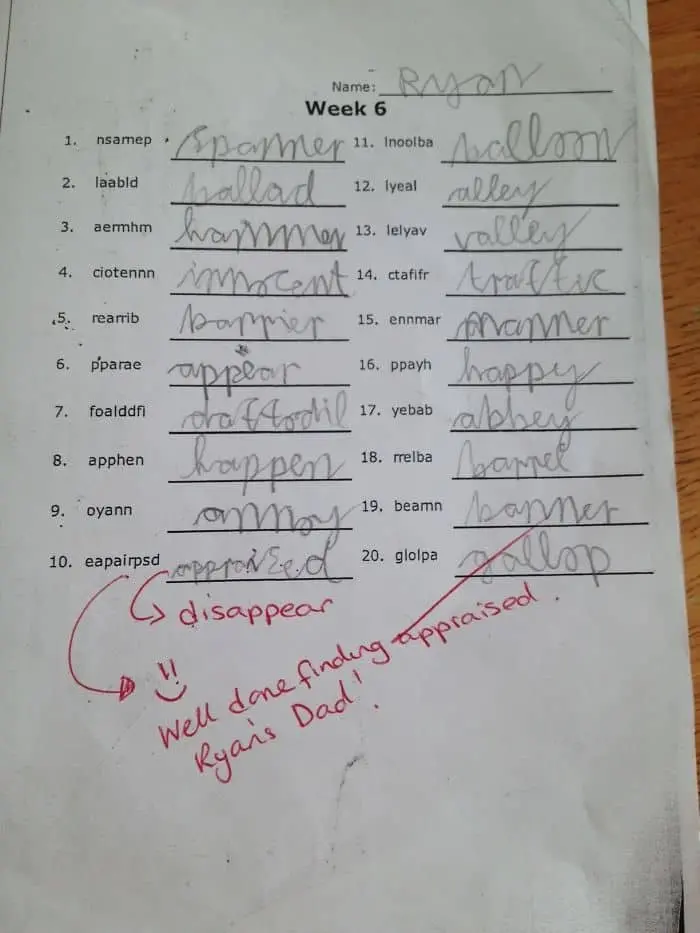 Name: Ryan
Week 6
1. nsamep spanner 11. lnoolba balloon
2. laabld ballad 12. lyeal alley
3. aermhm hammer 13. lelyav valley
4. ciotennn innocent 14. ctafifr traffic
5. rearrib barrier 15. ennmar manner
6. pparae appear 16. ppayh happy
7. foalddfi daffodil 17. yebab abbey
8. apphen happen 18. rrelba barrel
9. oyann annoy 19. beamn banner
10. eapairpsd appraised 20. glolpa gallop
disappear
Well done finding appraised.
Ryan's Dad!